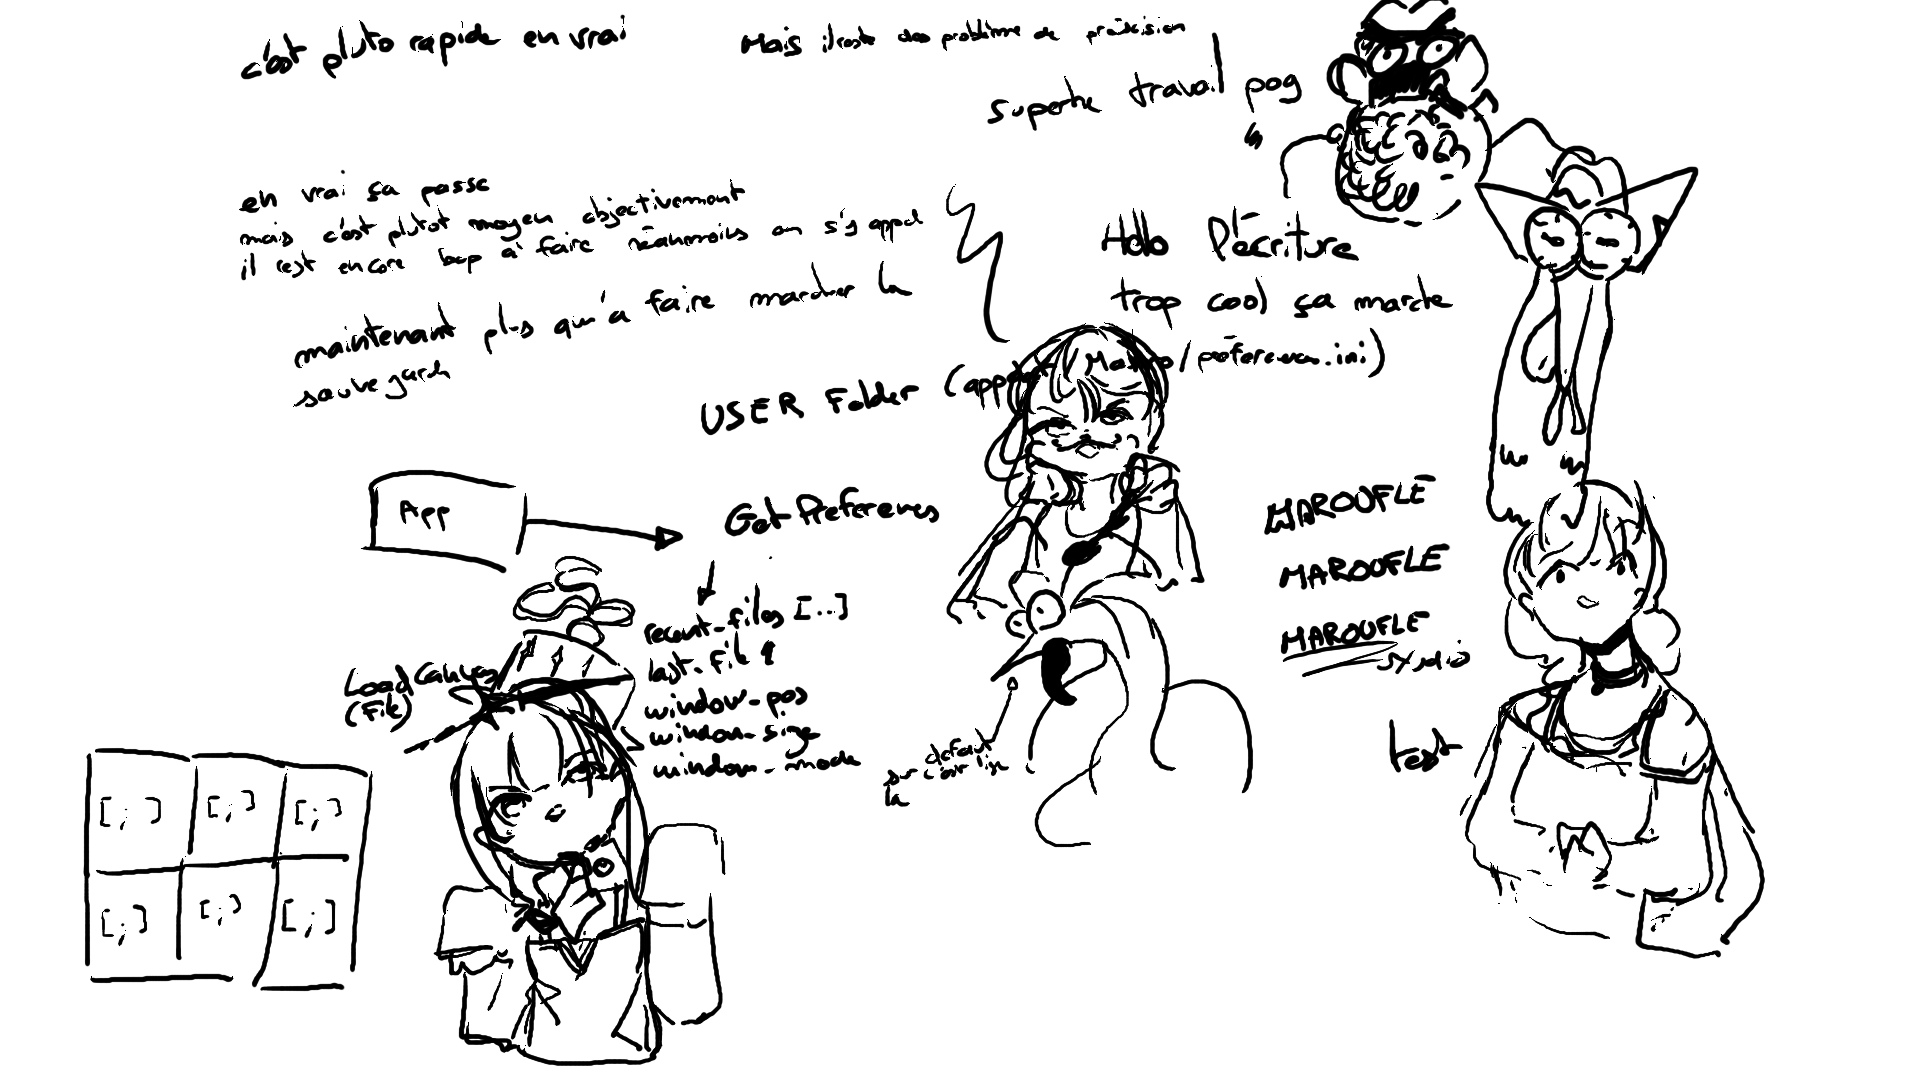 c'est pluto rapide en vrai
Mais il reste des problème de précision
superbe travail pog
en vrai ça passe
mais c'est plutot moyen objectivement
il rest encore bcp à faire néanmoins on s'y appel
maintenant plus qu'à faire marcher la
sauvegarde
Hello l'écriture
trop cool ça marche
USER Folder (appdata/ Ma /préferences.ini)
App
Get Preferences
recent_files [...]
last_file
window_pos
window_size
window_mode
Load Canvas
(File)
par defaut
c'est
la
MAROUFLE
MAROUFLE
MAROUFLE
studio
test
[;] [;] [;]
[;] [;] [;]